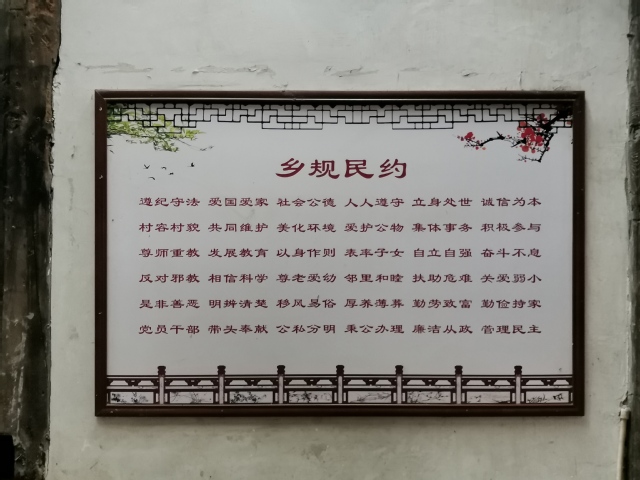 乡规民约
遵纪守法 爱国爱家 社会公德 人人遵守 立身处世 诚信为本
村容村貌 共同维护 美化环境 爱护公物 集体事务 积极参与
尊师重教 发展教育 以身作则 表率子女 自立自强 奋斗不息
反对邪教 相信科学 尊老爱幼 邻里和睦 扶助危难 关爱弱小
是非善恶 明辨清楚 移风易俗 厚养薄葬 勤劳致富 勤俭持家
党员干部 带头奉献 公私分明 秉公办理 廉洁从政 管理民主